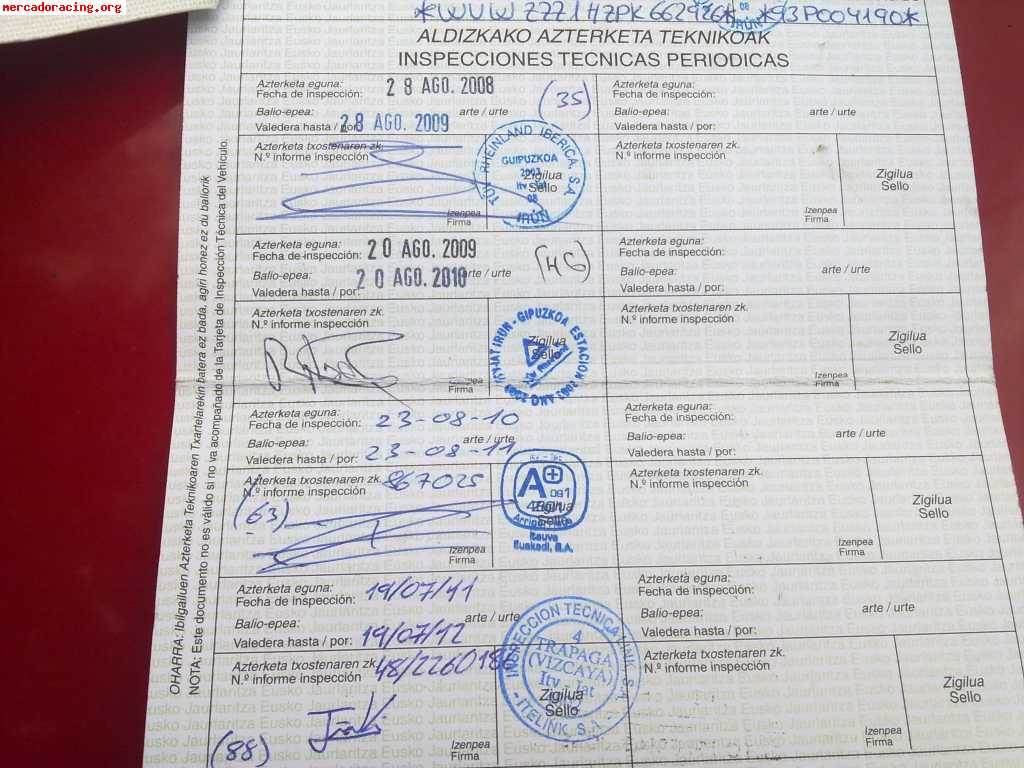 mercadoracing.org
ALDIZKAKO AZTERKETA TEKNIKOAK
INSPECCIONES TECNICAS PERIODICAS
Azterketa eguna:
Fecha de inspección: 28 AGO. 2008
Balio-epea: arte / urte
Valedera hasta / por: 28 AGO. 2009
(35)
Azterketa txostenaren zk.
N.º informe inspección
TÜV RHEINLAND IBERICA, S.A.
GUIPUZKOA
IRÚN
Zigilua
Sello
Izenpea
Firma
Azterketa eguna:
Fecha de inspección:
Balio-epea: arte / urte
Valedera hasta / por:
Azterketa txostenaren zk.
N.º informe inspección
Zigilua
Sello
Izenpea
Firma
Azterketa eguna:
Fecha de inspección: 20 AGO. 2009
Balio-epea: arte / urte
Valedera hasta / por: 20 AGO. 2010
Azterketa txostenaren zk.
N.º informe inspección
Zigilua
Sello
Izenpea
Firma
Azterketa eguna:
Fecha de inspección:
Balio-epea: arte / urte
Valedera hasta / por:
Azterketa txostenaren zk.
N.º informe inspección
Zigilua
Sello
Izenpea
Firma
Azterketa eguna:
Fecha de inspección: 23-08-10
Balio-epea: arte / urte
Valedera hasta / por: 23-08-11
Azterketa txostenaren zk. 867025
N.º informe inspección
(63)
Zigilua
Sello
Itauve
Euskadi, S.A.
Izenpea
Firma
Azterketa eguna:
Fecha de inspección:
Balio-epea: arte / urte
Valedera hasta / por:
Azterketa txostenaren zk.
N.º informe inspección
Zigilua
Sello
Izenpea
Firma
Azterketa eguna:
Fecha de inspección: 19/07/11
Balio-epea: arte / urte
Valedera hasta / por: 19/07/12
Azterketa txostenaren zk.
N.º informe inspección
(88)
INSPECCION TECNICA
4
TRAPAGA
(VIZCAYA)
Itv - Iat
ITELINK, S.A.
Zigilua
Sello
Izenpea
Firma
Azterketa eguna:
Fecha de inspección:
Balio-epea: arte / urte
Valedera hasta / por:
Azterketa txostenaren zk.
N.º informe inspección
Zigilua
Sello
Izenpea
Firma
OHARRA: Ibilgailuen Azterketa Teknikoaren Txartelarekin batera ez bada, agiri honez ez du baliorik
NOTA: Este documento no es válido si no va acompañado de la Tarjeta de Inspección Técnica del Vehículo.